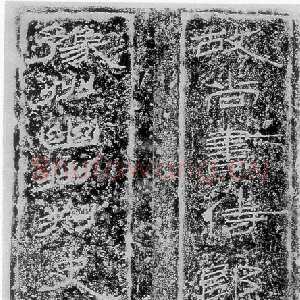 故尚書侍郎
豫州幽州刺史